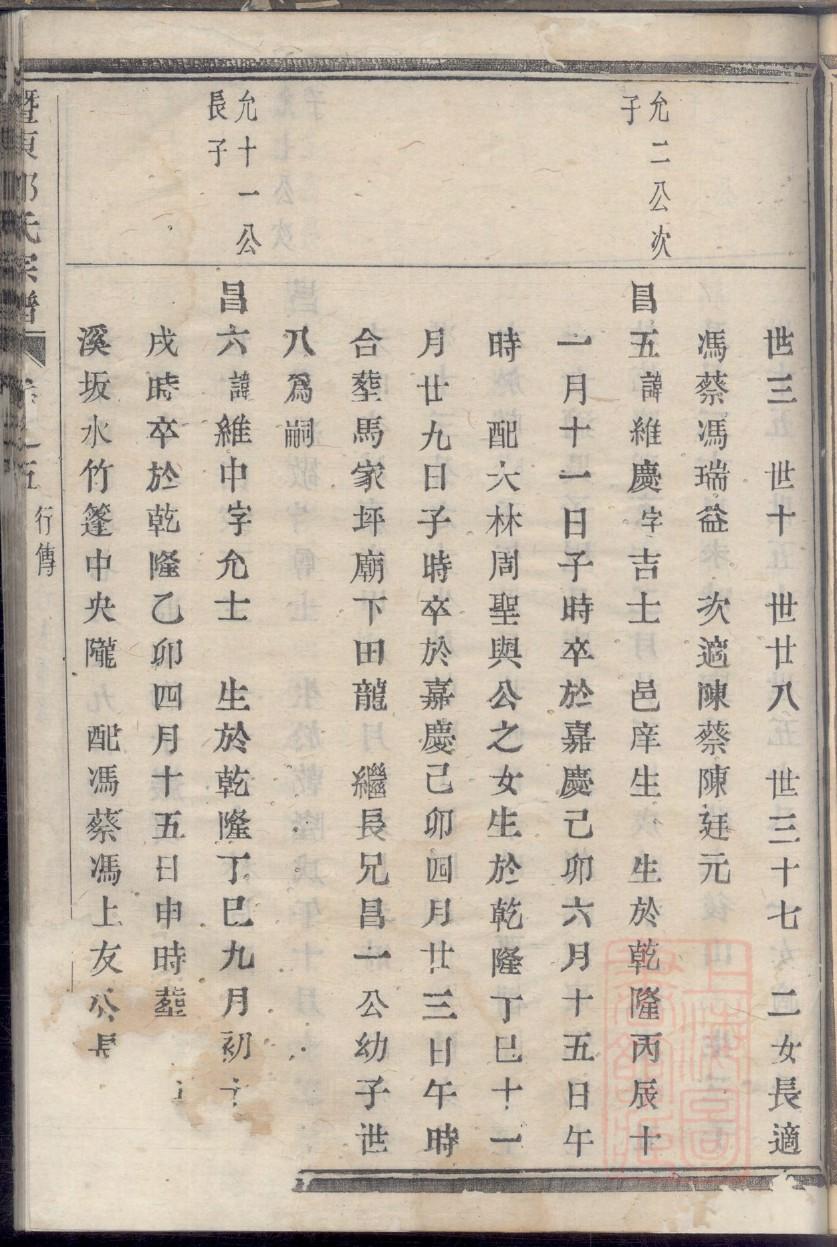 世三 世十五 世廿八五 世三十七 二女長適
馮蔡馮瑞益 次適陳蔡陳廷元
允二公次
子
昌五諱維慶字吉士 邑庠生 生於乾隆丙辰十
一月十一日子時卒於嘉慶己卯六月十五日午
時 配大林周聖與公之女生於乾隆丁巳十一
月廿九日子時卒於嘉慶己卯四月廿三日午時
合塟馬家坪廟下田龍 繼長兄昌一公幼子世
八爲嗣
允十一公
長子
昌六諱維中字允士 生於乾隆丁巳九月初十
戌時卒於乾隆乙卯四月十五日申時塟
溪坂水竹篷中央隴 配馮蔡馮上友公長
暨東 氏宗譜 卷之五 行傳